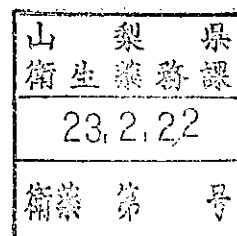 山梨県
衛生薬務課
23.2.22
衛薬第 号